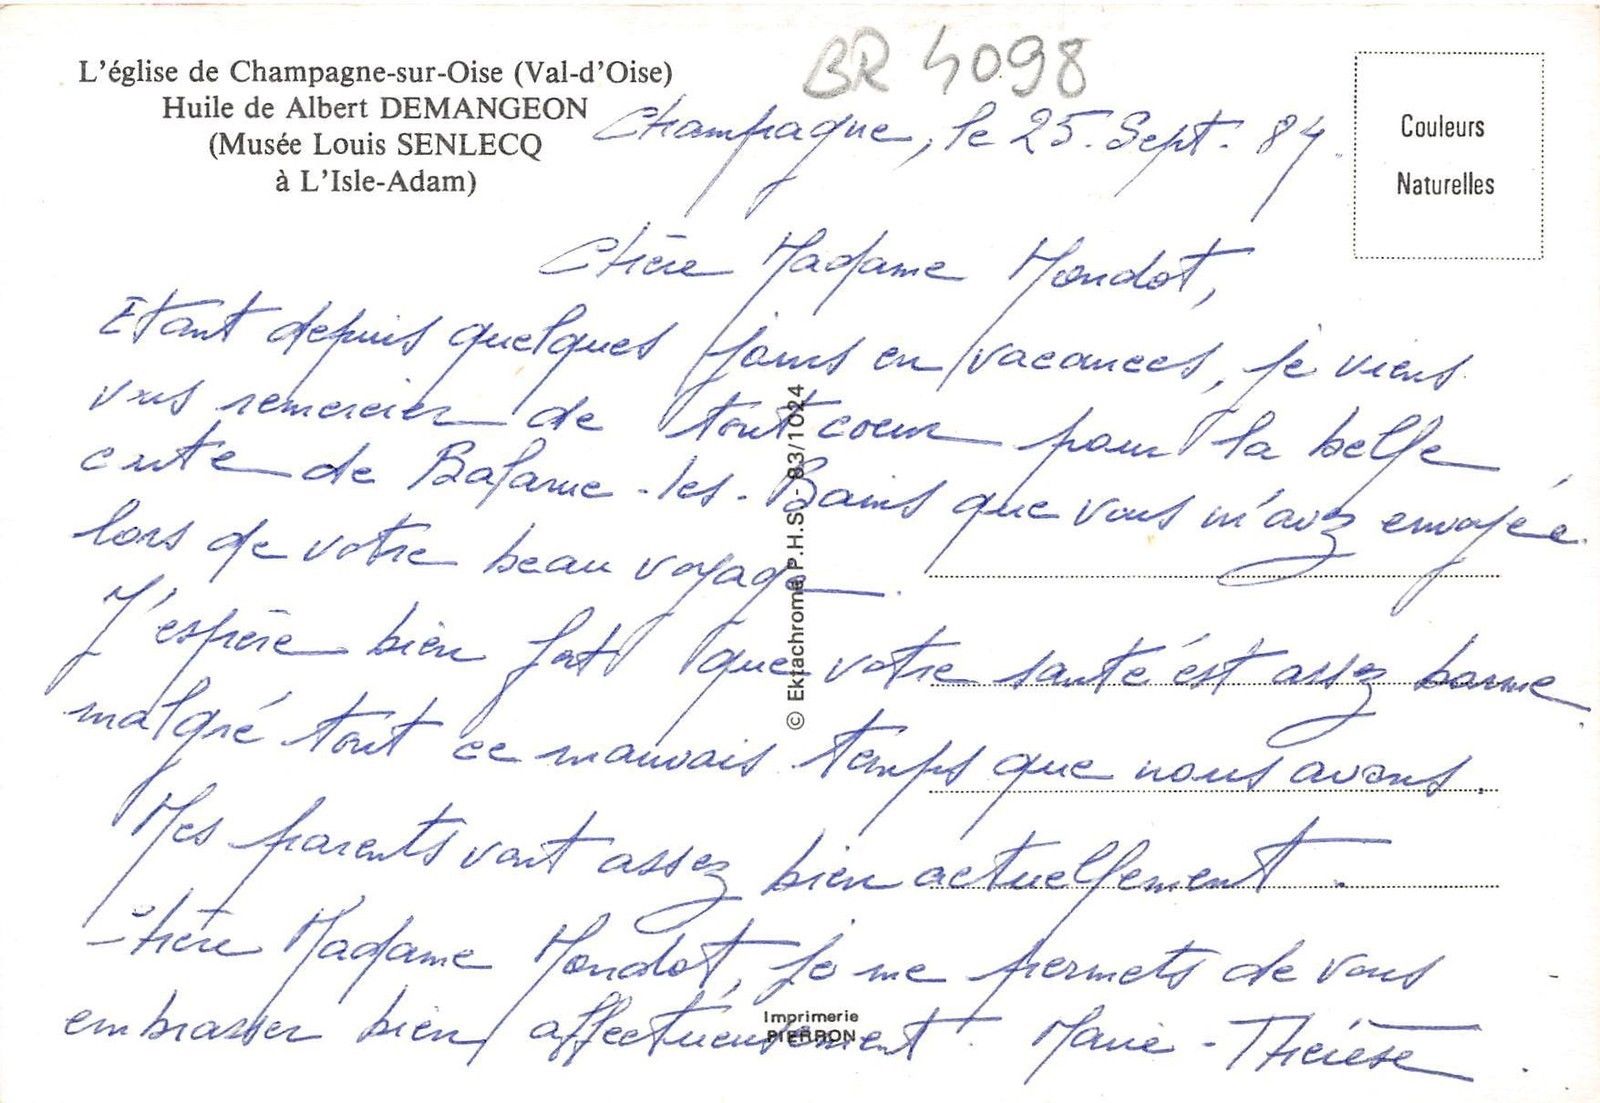 L'église de Champagne-sur-Oise (Val-d'Oise)
Huile de Albert DEMANGEON
(Musée Louis SENLECQ
à L'Isle-Adam)
BR 4098
Couleurs
Naturelles
Champagne, le 25. Sept. 84.
Chère Madame Mondot,
Etant depuis quelques jours en vacances, je viens
vous remercier de tout coeur pour la belle
carte de Balaruc-les-Bains que vous m'avez envoyée
lors de votre beau voyage.
J'espère bien fort que votre santé est assez bonne
malgré tout ce mauvais temps que nous avons.
Mes parents vont assez bien actuellement.
Chère Madame Mondot, je me permets de vous
embrasser bien affectueusement. Marie-Thérèse.
© Ektachrome P.H.S. - 83/1024
Imprimerie
PIERRON